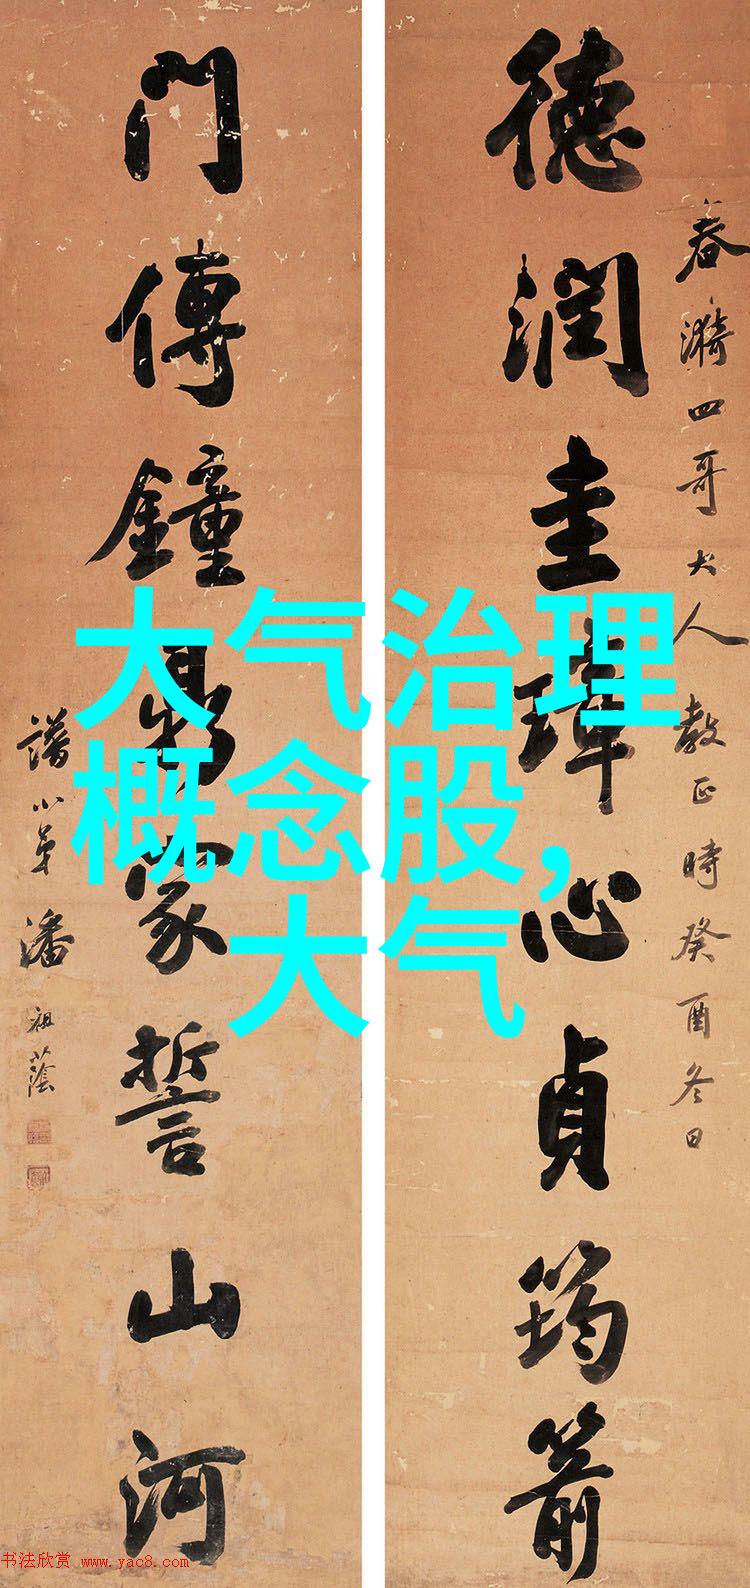 德潤圭璋心貞筠箭
春漪四哥大人教正時癸酉冬日
門傳鐘鼎家誓山河
譜小弟潘祖蔭
大气治理
概念股,
大气
书法欣赏 www.yac8.com